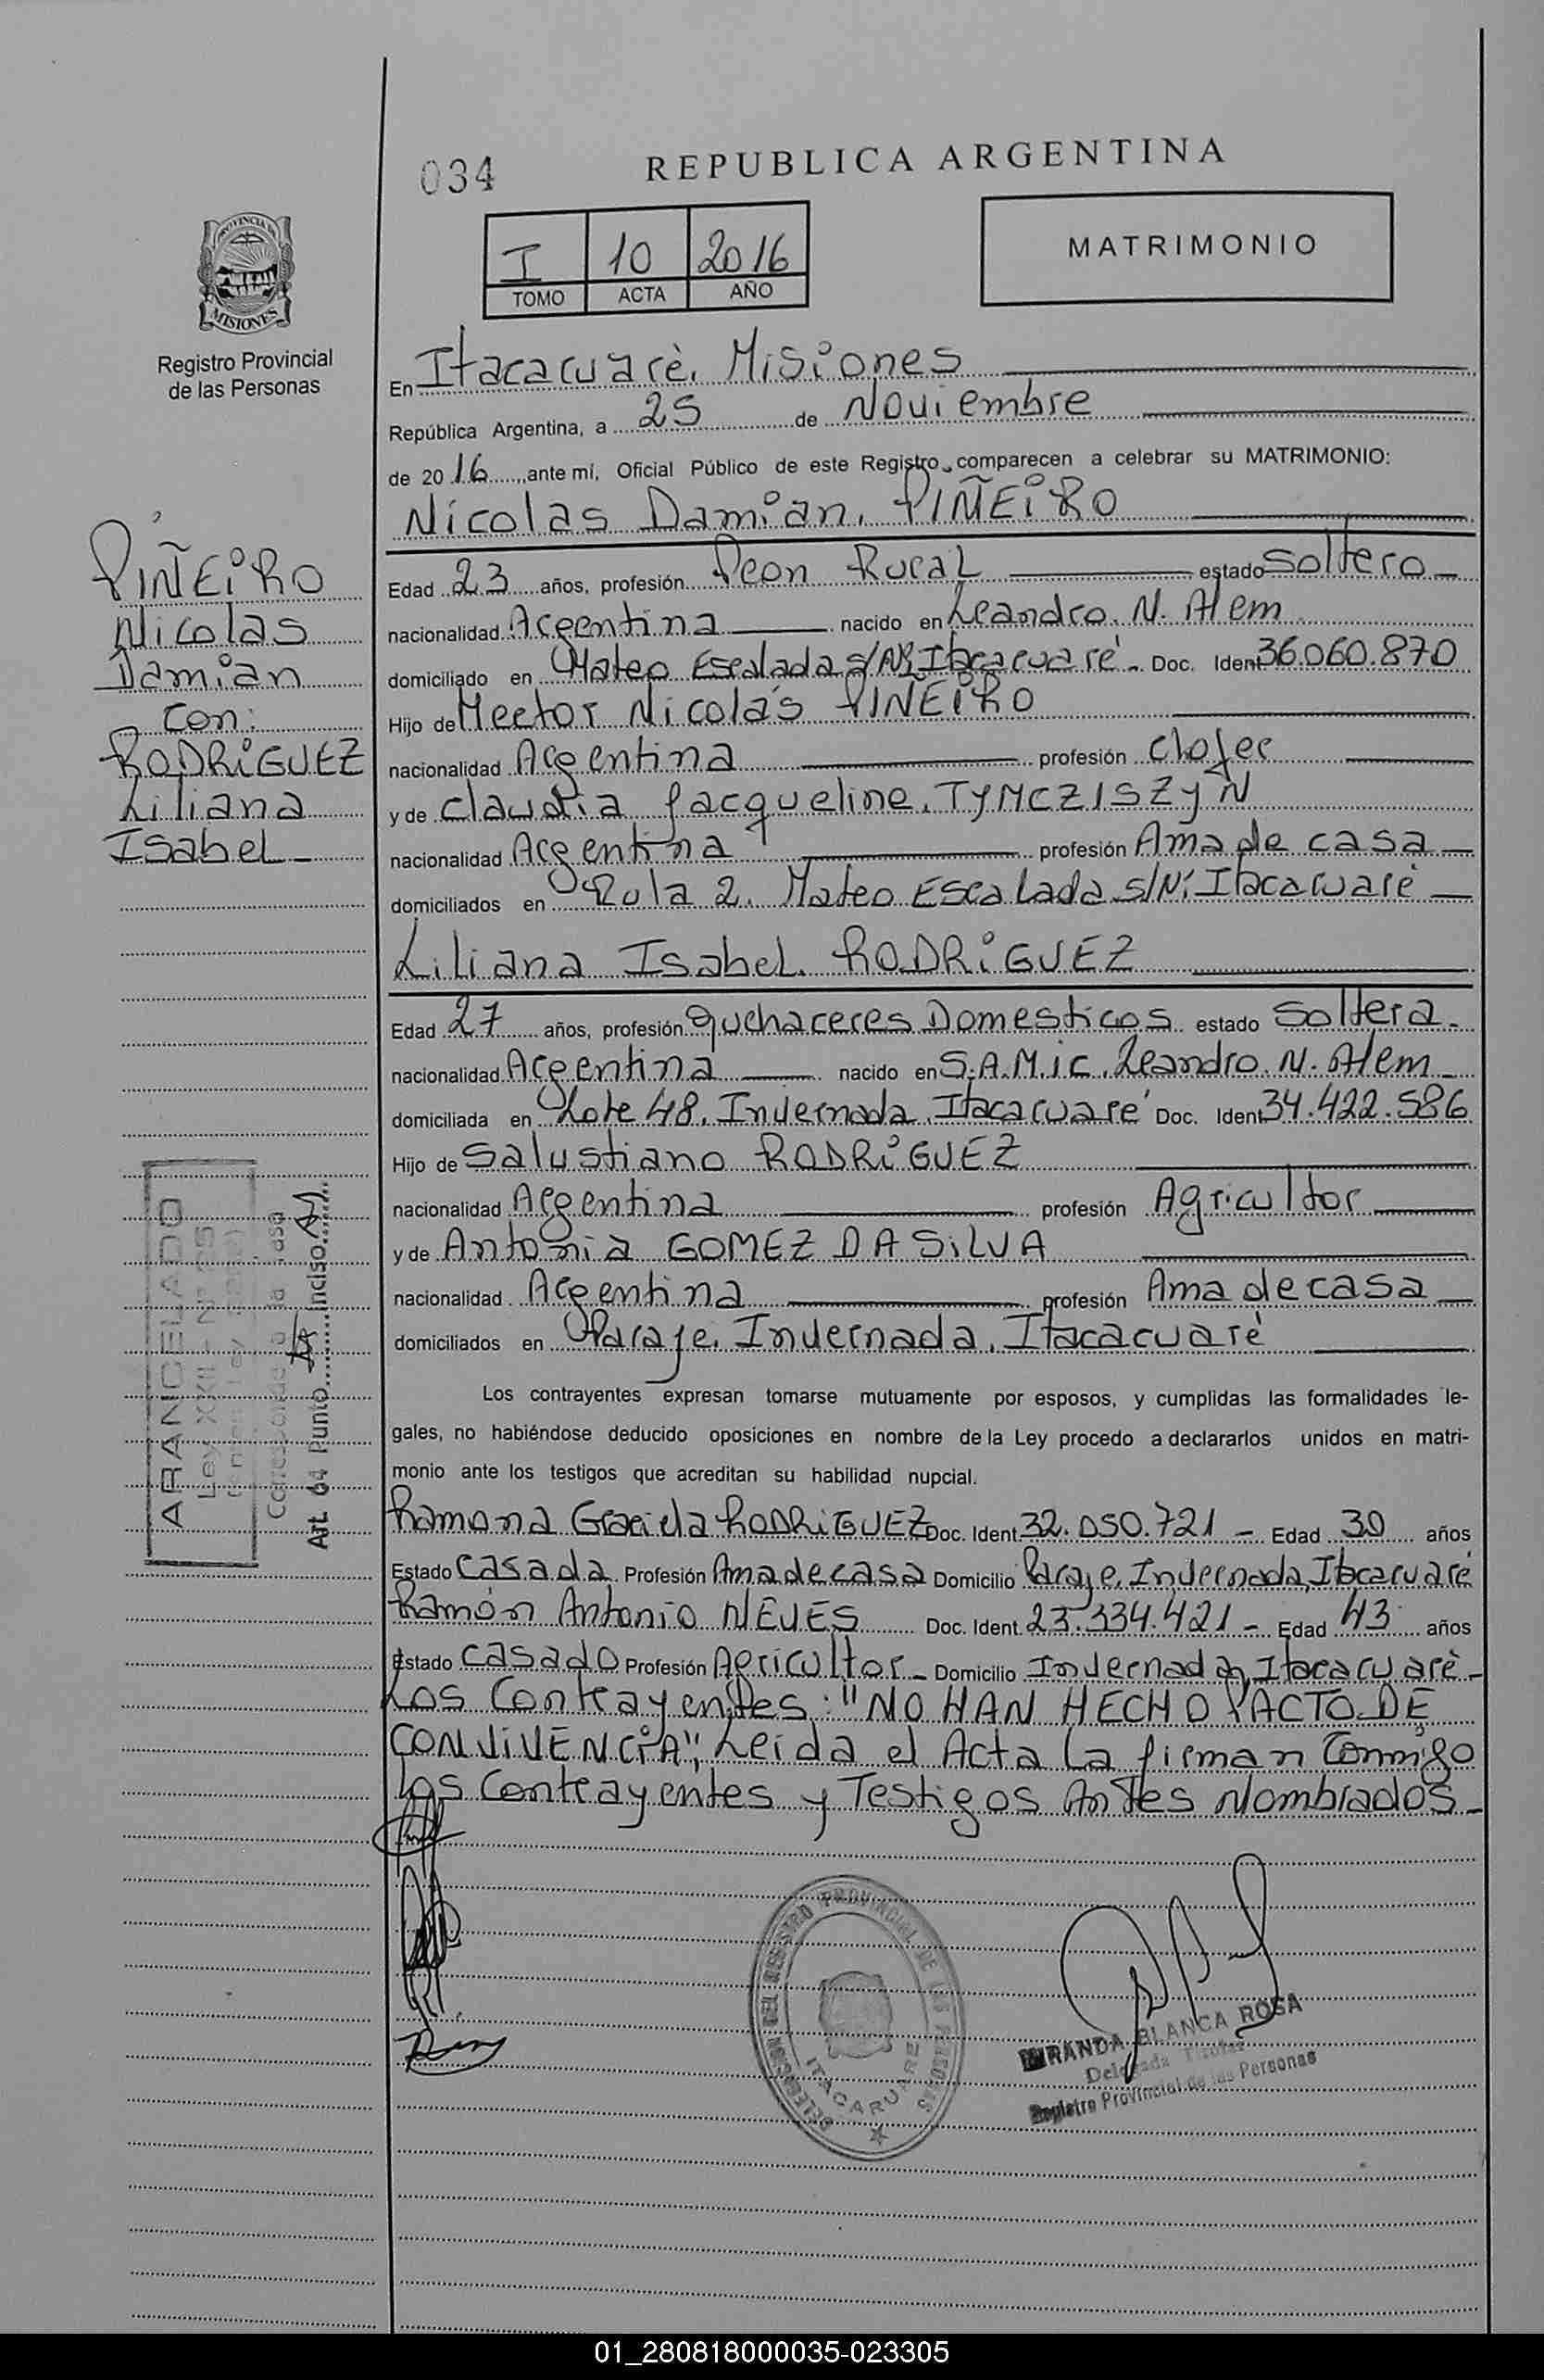 034
REPUBLICA ARGENTINA
I 10 2016
TOMO ACTA AÑO
MATRIMONIO
PROVINCIA DE
MISIONES
Registro Provincial
de las Personas
En Itacaruarè, Misiones
República Argentina, a 25 de Noviembre
de 2016, ante mí, Oficial Público de este Registro, comparecen a celebrar su MATRIMONIO:
Nicolas Damian, PIÑEiRO
PIÑEiRO
Nicolas
Damian
Con:
RODRiGUEZ
Liliana
Isabel
Edad 23 años, profesión Peon Rural estado Soltero
nacionalidad Argentina nacido en Leandro. N. Alem
domiciliado en Mateo Escalada s/Nº, Itacaruaré Doc. Ident 36.060.870
Hijo de Hector Nicolás PIÑEiRO
nacionalidad Argentina profesión Chofer
y de Claudia Jacqueline, TYMCZISZyN
nacionalidad Argentina profesión Ama de casa
domiciliados en Ruta 2. Mateo Escalada s/Nº Itacaruaré
Liliana Isabel. RODRiGUEZ
Edad 27 años, profesión quehaceres Domesticos estado Soltera
nacionalidad Argentina nacido en S.A.M.ic. Leandro. N. Alem
domiciliada en Lote 48, Invernada, Itacaruaré Doc. Ident 34.422.586
Hijo de Salustiano RODRiGUEZ
nacionalidad Argentina profesión Agricultor
y de Antonia GOMEZ DA SiLVA
nacionalidad Argentina profesión Ama de casa
domiciliados en Paraje, Invernada, Itacaruaré
Los contrayentes expresan tomarse mutuamente por esposos, y cumplidas las formalidades le-
gales, no habiéndose deducido oposiciones en nombre de la Ley procedo a declararlos unidos en matri-
monio ante los testigos que acreditan su habilidad nupcial.
Ramona Graciela RODRiGUEZ Doc. Ident. 32.050.721 - Edad 30 años
Estado Casada Profesión Ama de casa Domicilio Paraje, Invernada, Itacaruaré
Ramón Antonio NEVES Doc. Ident. 23.334.421 - Edad 43 años
Estado Casado Profesión Agricultor - Domicilio Invernada, Itacaruarè
Los Contrayentes: "NO HAN HECHO PACTO DE
CONViVENCiA", Leida el Acta la firman Conmigo
los Contrayentes y Testigos Antes Nombrados
ARANCELADO
Ley XXII - Nº 25
Corresponde a la tasa
Art. 64 Punto inciso
DELEGACION DEL REGISTRO PROVINCIAL DE LAS PERSONAS
ITACARUARE
MIRANDA BLANCA ROSA
Delegada Titular
Registro Provincial de las Personas
01_280818000035-023305